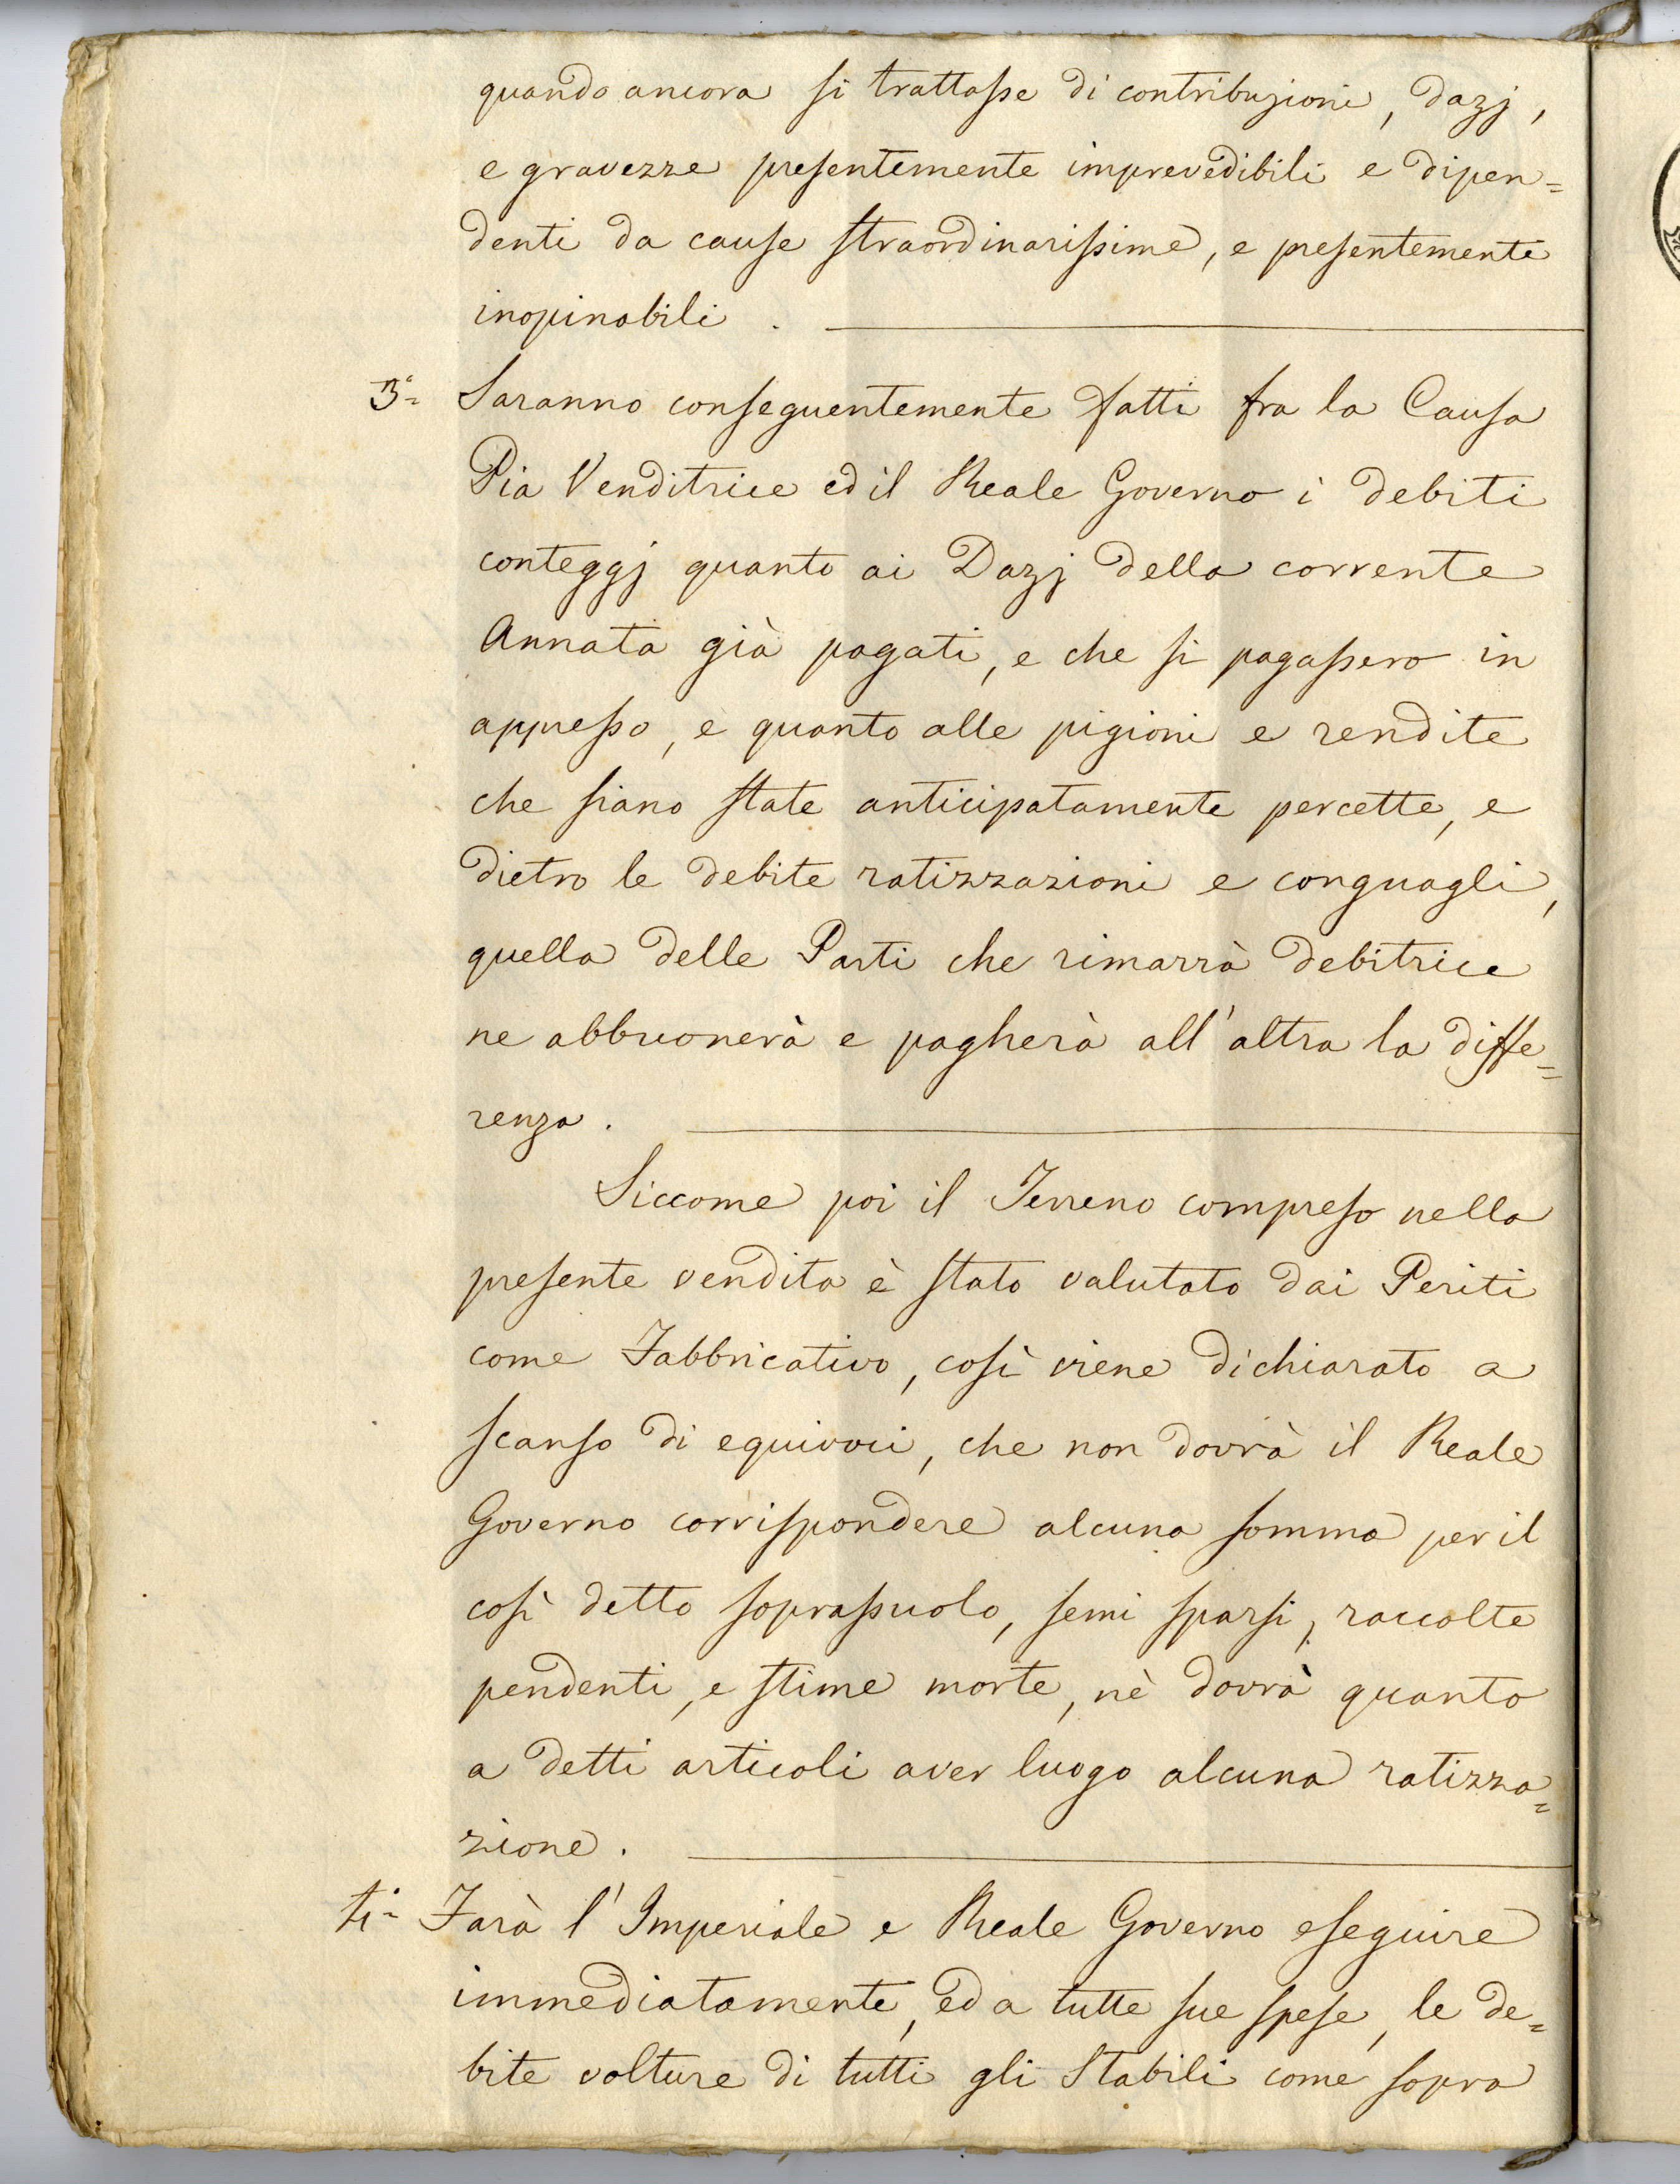 quando ancora si trattasse di contribuzioni, dazj,
e gravezze presentemente imprevedibili e dipen=
denti da cause straordinarissime, e presentemente
inopinabili .
3.° Saranno conseguentemente fatti fra la Causa
Pia Venditrice ed il Reale Governo i debiti
conteggj quanto ai Dazj della corrente
Annata già pagati, e che si pagassero in
appresso, e quanto alle pigioni e rendite
che siano state anticipatamente percette, e
dietro le debite ratizzazioni e conguagli,
quella delle Parti che rimarrà debitrice
ne abbuonerà e pagherà all'altra la diffe=
renza .
Siccome poi il Terreno compreso nella
presente vendita è stato valutato dai Periti
come Fabbricativo, così viene dichiarato a
scanso di equivoci, che non dovrà il Reale
Governo corrispondere alcuna somma per il
così detto soprassuolo, semi sparsi, raccolte
pendenti, e stime morte, nè dovrà quanto
a detti articoli aver luogo alcuna ratizza=
zione .
4.° Farà l'Imperiale e Reale Governo eseguire
immediatamente, ed a tutte sue spese, le de=
bite volture di tutti gli Stabili come sopra